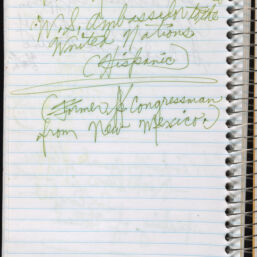 U.S. Ambassador to the
United Nations
(Hispanic)
(Former Congressman
from New Mexico.)